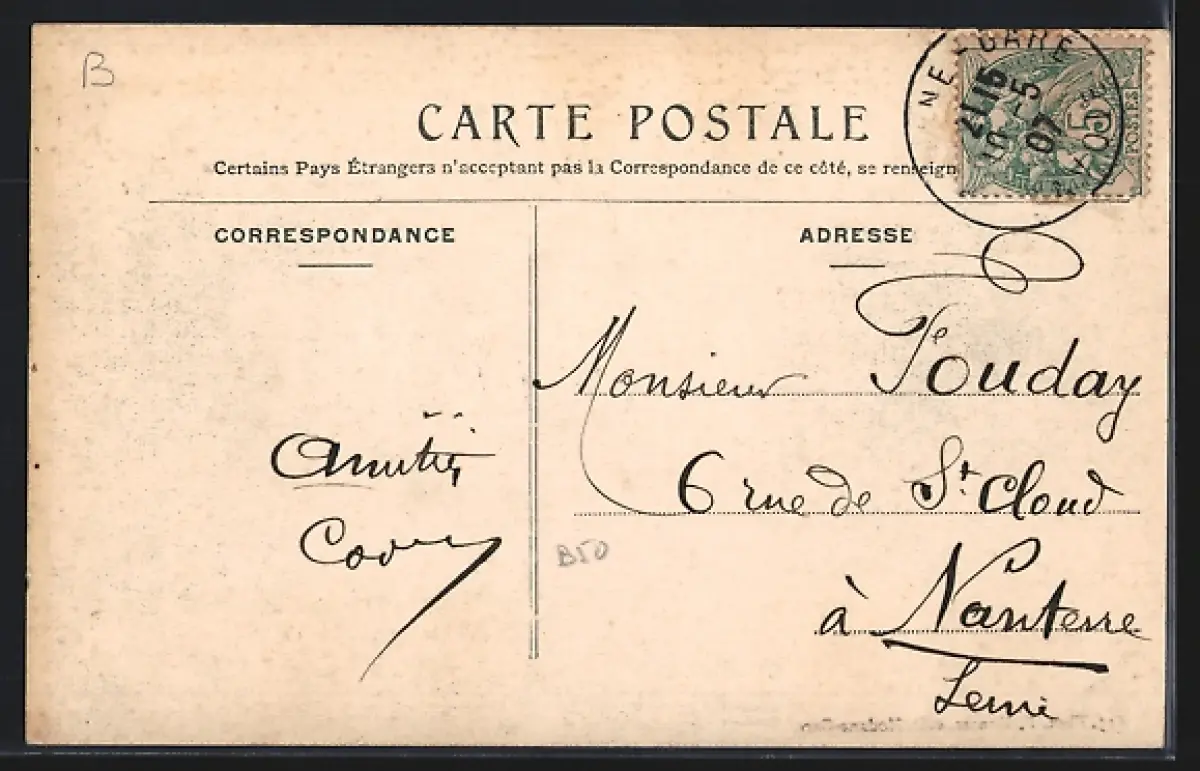 B
CARTE POSTALE
Certains Pays Étrangers n'acceptant pas la Correspondance de ce côté, se renseign
NE GARE
21 15
10 -5
07
5
POSTES
CORRESPONDANCE
ADRESSE
Monsieur Fouday
6 rue de St. Cloud
à Nanterre
Seine
Amitiés
B50